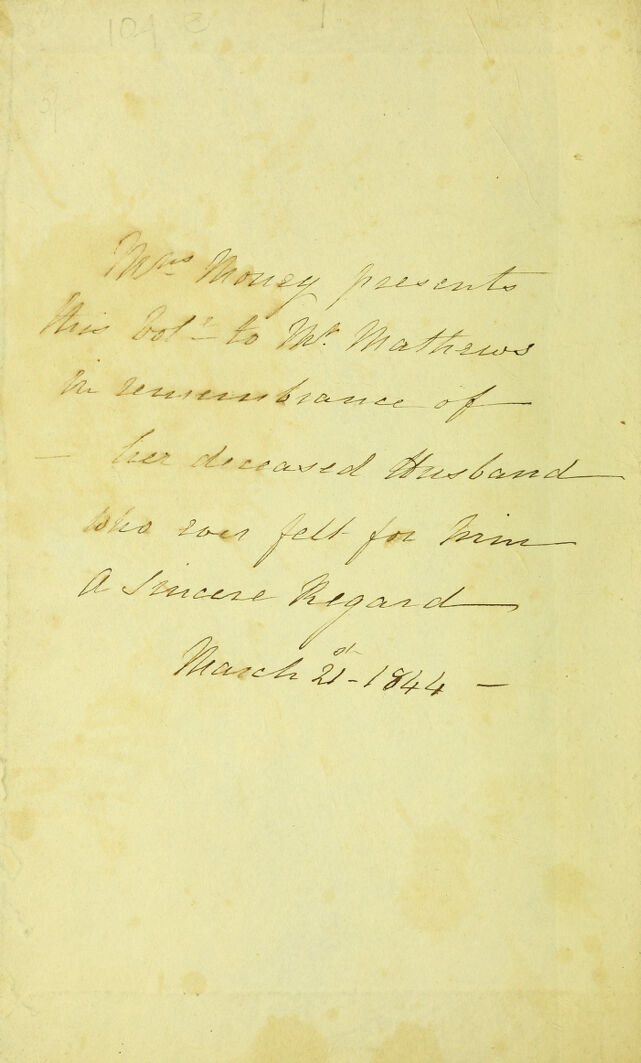 104
Mrs Money presents
this Vol: to Mr. Mathews
in remembrance of
— her deceased Husband
who ever felt for him
A Sincere Regard
March 21st - 1844 —